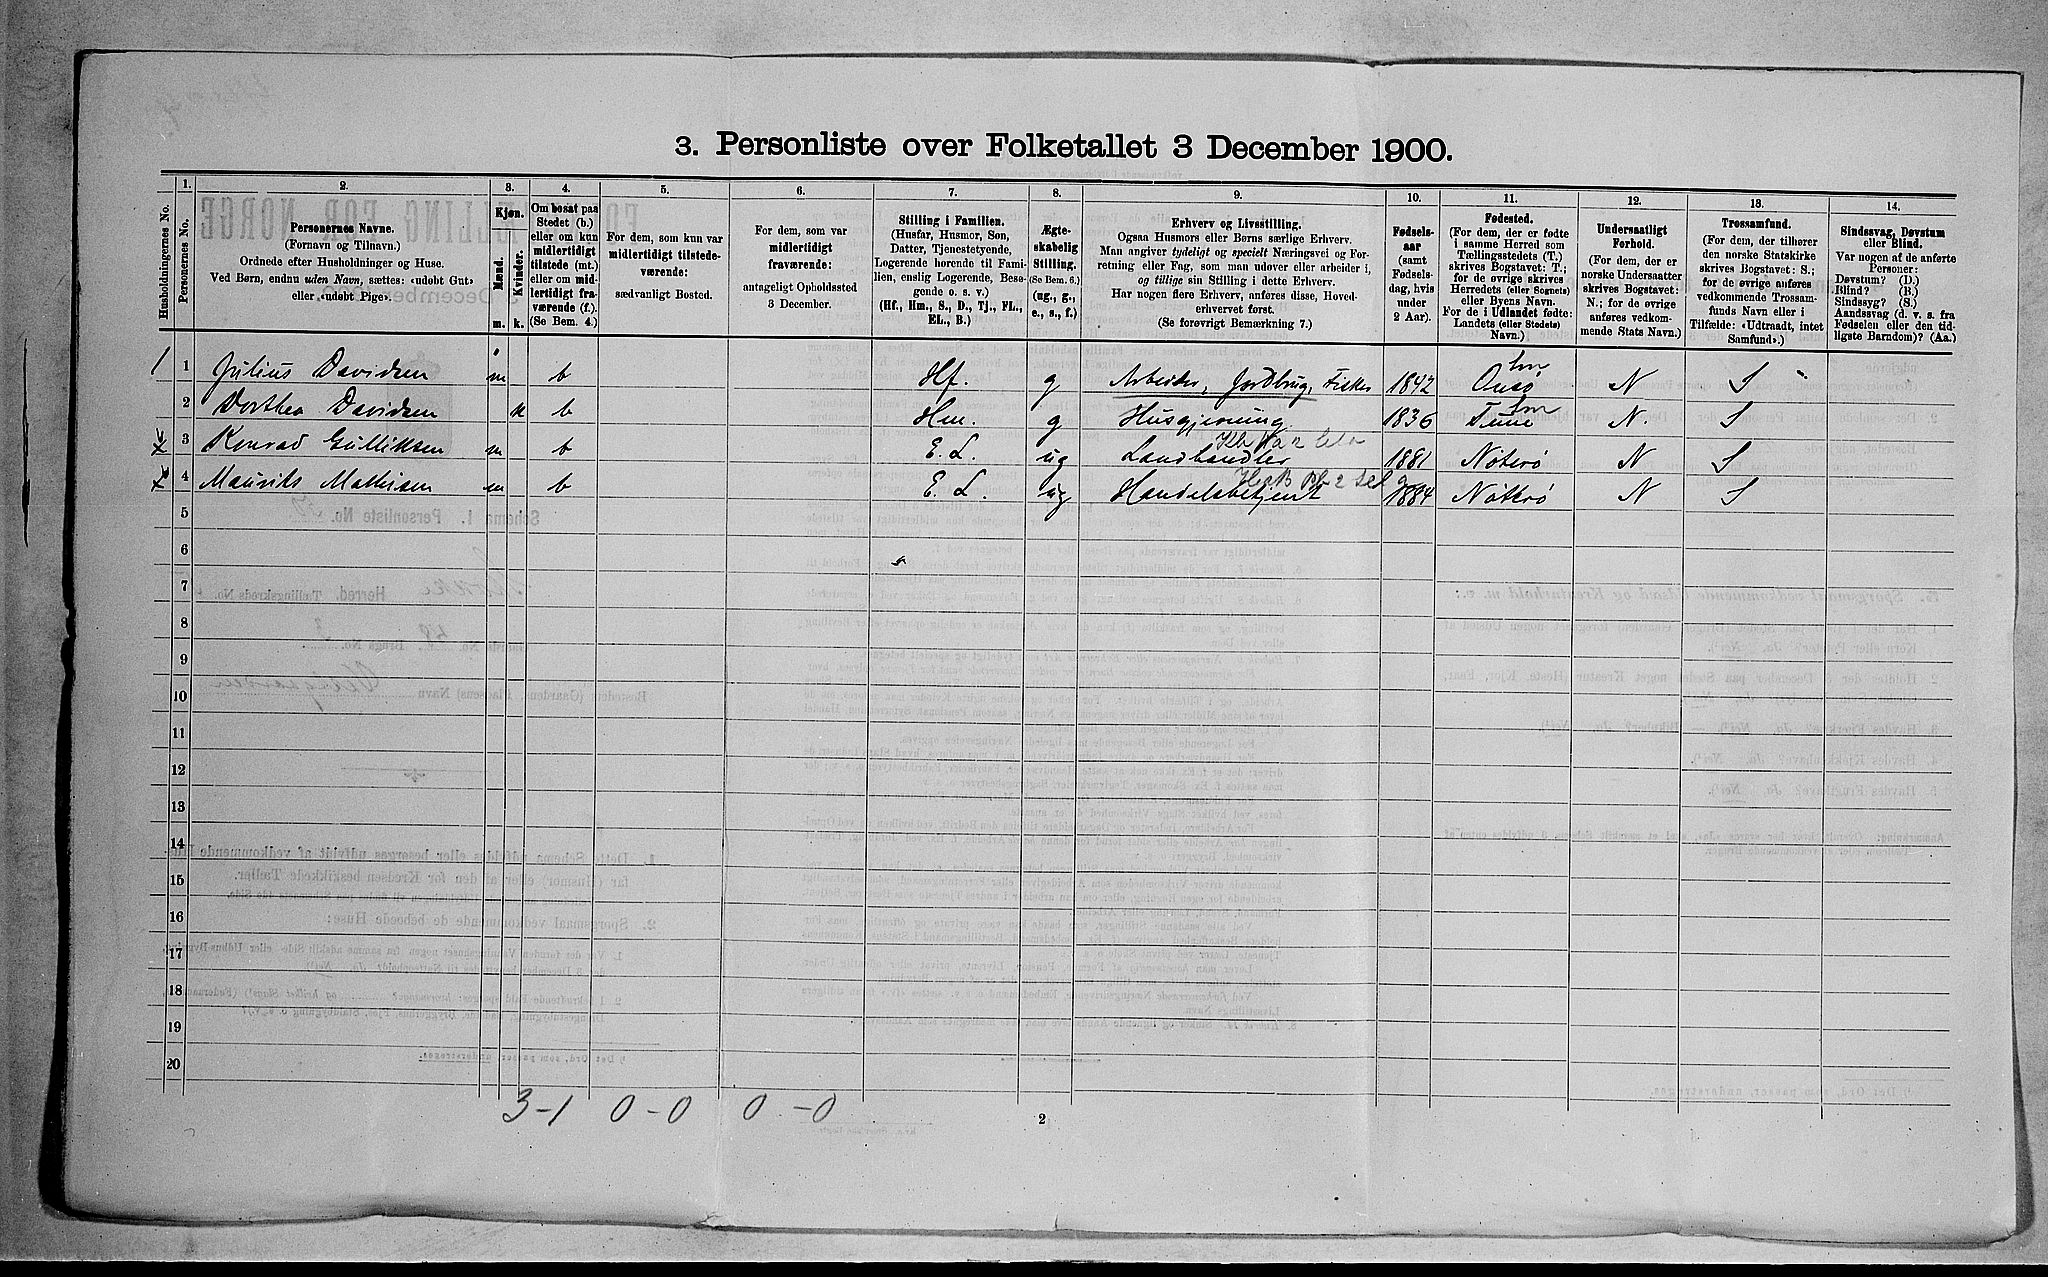 3. Personliste over Folketallet 3 December 1900.
Husholdningernes No.
1.
Personernes No.
2.
Personernes Navne.
(Fornavn og Tilnavn.)
Ordnede efter Husholdninger og Huse.
Ved Børn, endnu uden Navn, sættes: «udøbt Gut»
eller «udøbt Pige».
3.
Kjøn.
Mænd.
Kvinder.
m.
k.
4.
Om bosat paa
Stedet (b.)
eller om kun
midlertidigt
tilstede (mt.)
eller om mid-
lertidigt fra-
værende (f.).
(Se Bem. 4.)
5.
For dem, som kun var
midlertidigt tilstede-
værende:
sædvanligt Bosted.
6.
For dem, som var
midlertidigt
fraværende:
antageligt Opholdssted
3 December.
7.
Stilling i Familien.
(Husfar, Husmor, Søn,
Datter, Tjenestetyende,
Logerende hørende til Fami-
lien, enslig Logerende, Besø-
gende o. s. v.)
(Hf., Hm., S., D., Tj., FL.,
EL., B.)
8.
Ægte-
skabelig
Stilling.
(Se Bem. 6.)
(ug., g.,
e., s., f.)
9.
Erhverv og Livsstilling.
Ogsaa Husmors eller Børns særlige Erhverv.
Man angiver tydeligt og specielt Næringsvei og For-
retning eller Fag, som man udøver eller arbeider i,
og tillige sin Stilling i dette Erhverv.
Har nogen flere Erhverv, anføres disse, Hoved-
erhvervet først.
(Se forøvrigt Bemærkning 7.)
10.
Fødsels-
aar
(samt
Fødsels-
dag, hvis
under
2 Aar).
11.
Fødested.
(For dem, der er fødte
i samme Herred som
Tællingsstedets (T.)
skrives Bogstavet: T.;
for de øvrige skrives
Herredets (eller Sognets)
eller Byens Navn.
For de i Udlandet fødte:
Landets (eller Stedets)
Navn.)
12.
Undersaatligt
Forhold.
(For dem, der er
norske Undersaatter
skrives Bogstavet:
N.; for de øvrige
anføres vedkom-
mende Stats Navn.)
13.
Trossamfund.
(For dem, der tilhører
den norske Statskirke
skrives Bogstavet: S.;
for de øvrige anføres
vedkommende Trossam-
funds Navn eller i
Tilfælde: «Udtraadt, intet
Samfund».)
14.
Sindssvag, Døvstum
eller Blind.
Var nogen af de anførte
Personer:
Døvstum? (D.)
Blind? (B.)
Sindssyg? (S.)
Aandssvag (d. v. s. fra
Fødselen eller den tid-
ligste Barndom)? (Aa.)
1 1 Julius Davidsen m b Hf. g Arbeider, Jordbrug, Fisker 1842 Onsø Sm N S
2 Dorthea Davidsen k b Hm. g Husgjerning 1836 Tune Sm N. S
3 Konrad Gulliksen m b E. L. ug Landhandler 1881 Nøterø N S
4 Mauriks Mathisen m b E. L. ug Handelsbetjent 1884 Nøtterø N S
5
6
7
8
9
10
11
12
13
14
15
16
17
18
19
20
3-1 0-0 0-0
2